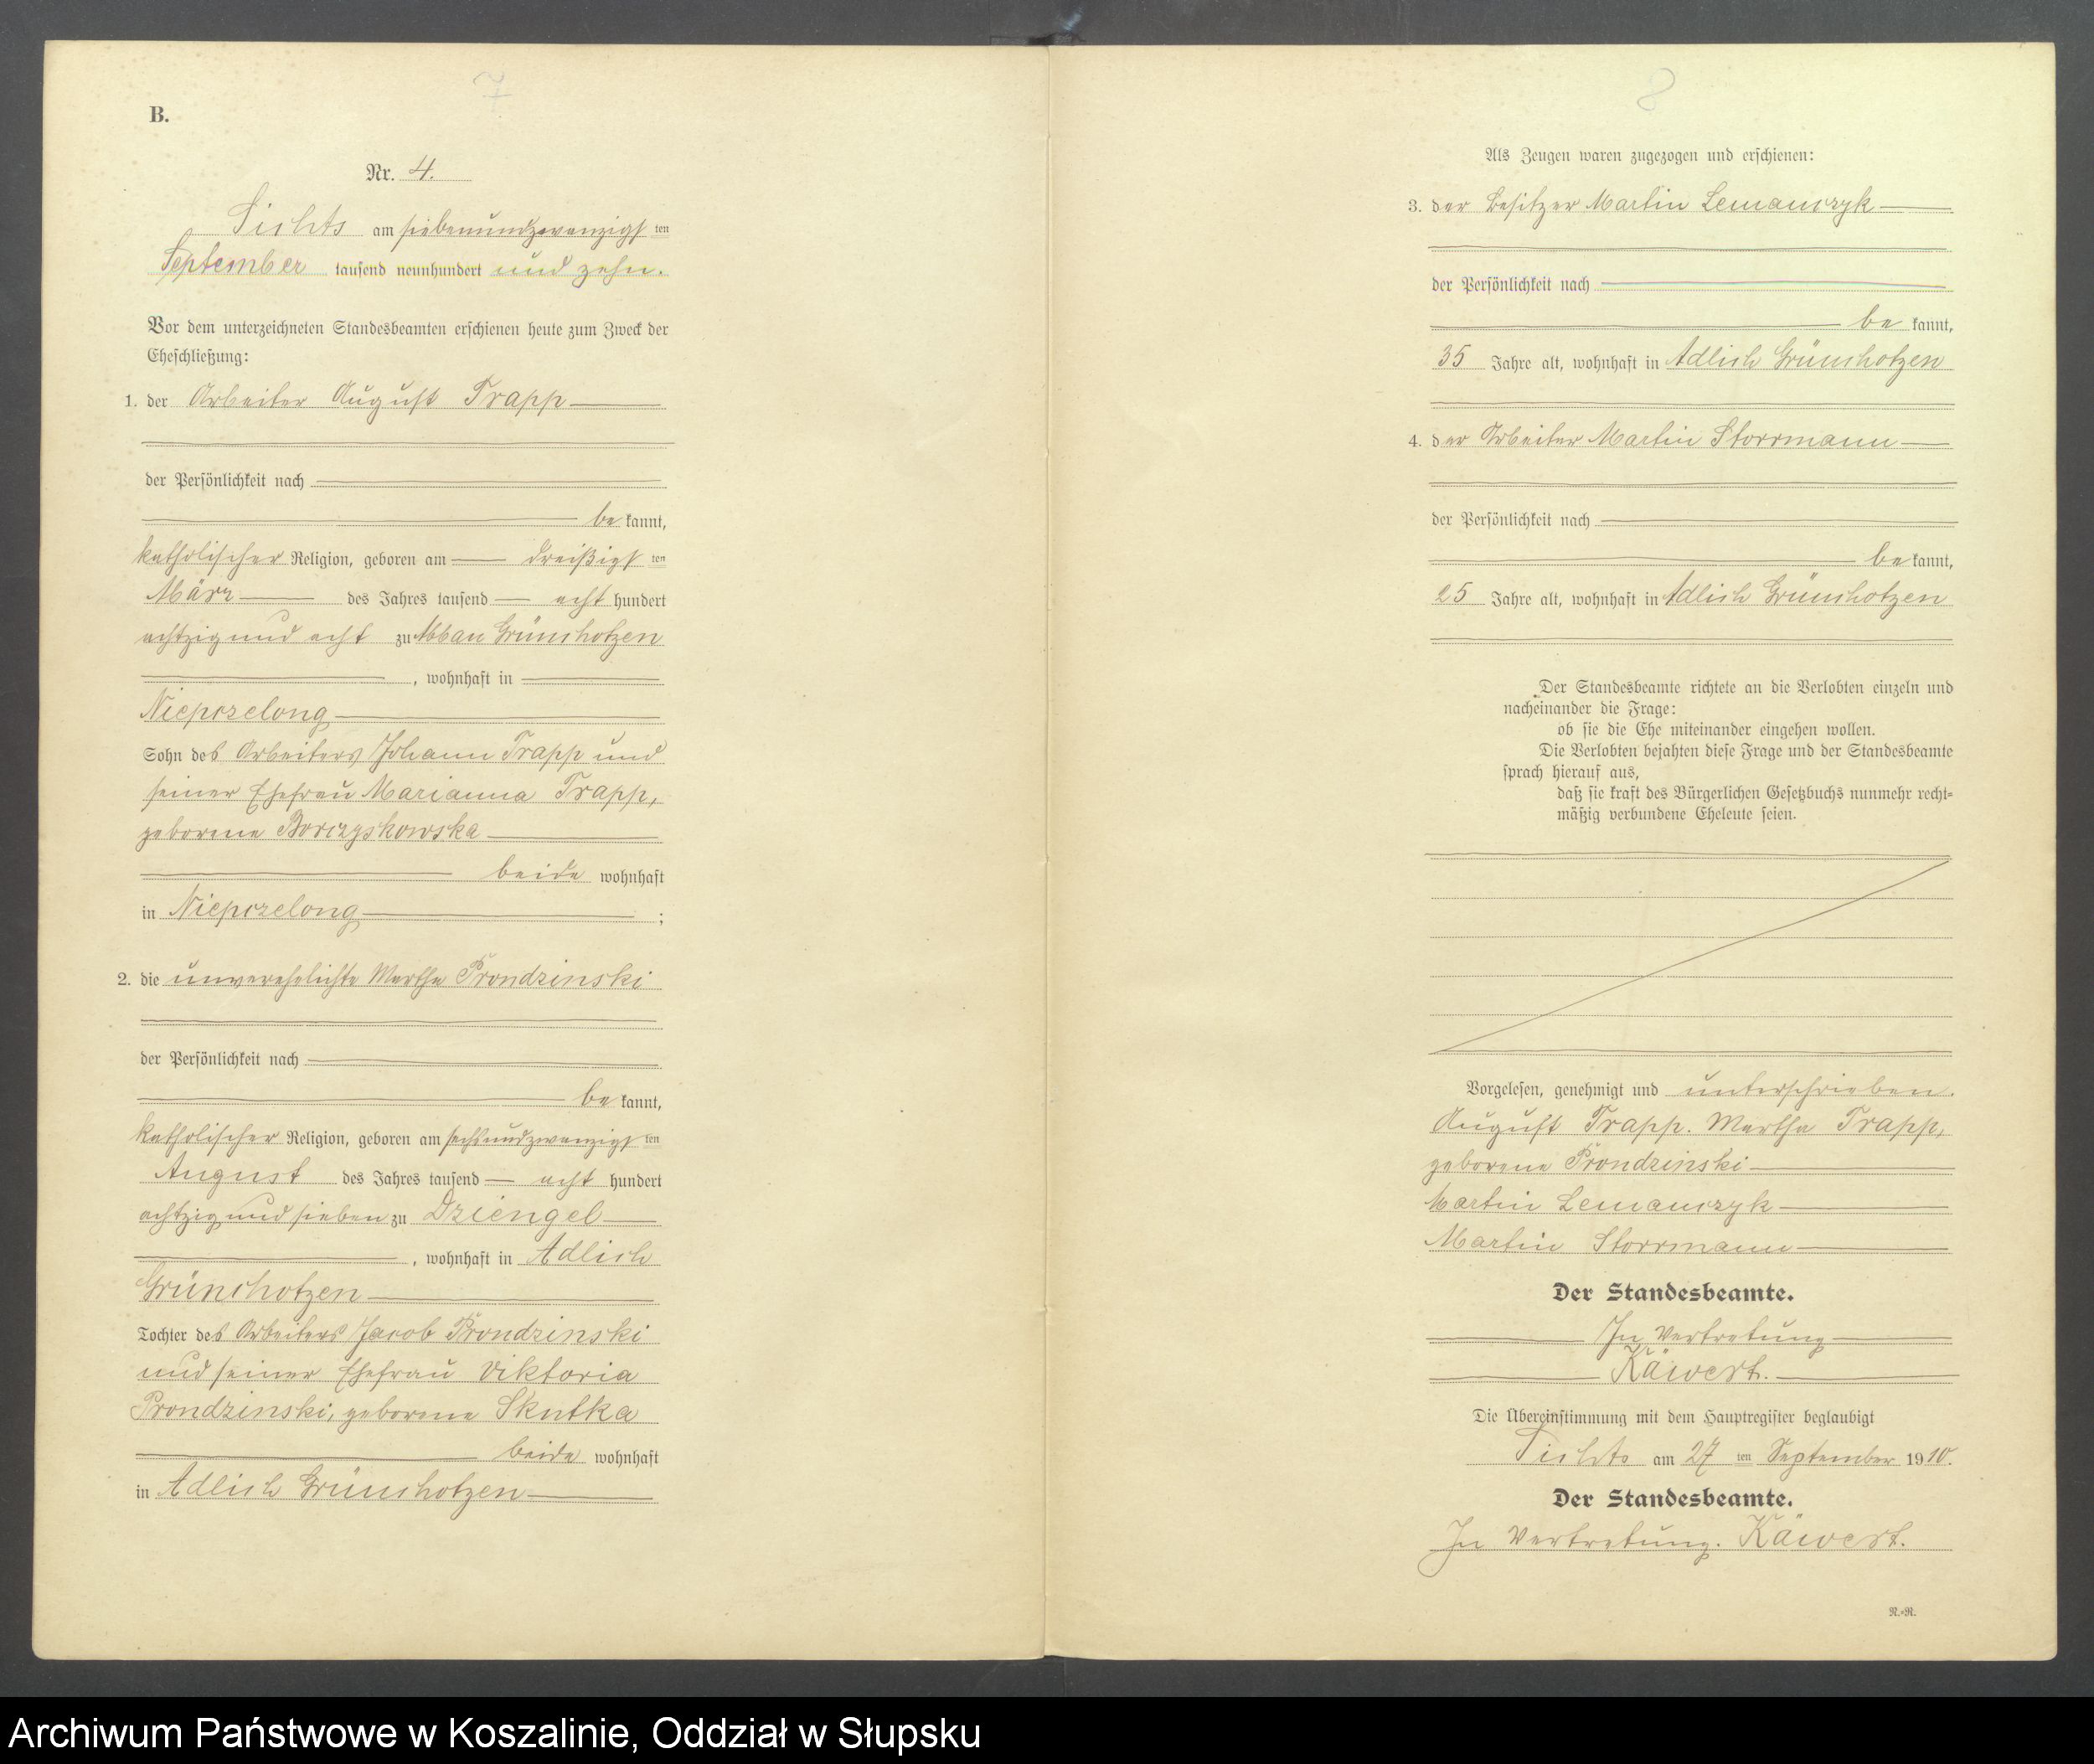 7
B.
Nr. 4.
Lichts am siebenundzwanzigsten
September tausend neunhundert und zehn.
Vor dem unterzeichneten Standesbeamten erschienen heute zum Zweck der
Eheschließung:
1. der Arbeiter August Trapp
der Persönlichkeit nach
bekannt,
katholischer Religion, geboren am dreißigsten
März des Jahres tausend acht hundert
achtzig und acht zu Abbau Grünchotzen
, wohnhaft in
Niepszelong
Sohn des Arbeiters Johann Trapp und
seiner Ehefrau Marianna Trapp,
geborene Borczyskowska
beide wohnhaft
in Niepczelong ;
2. die unverehelichte Martha Prondzinski
der Persönlichkeit nach
bekannt,
katholischer Religion, geboren am sechsundzwanzigsten
August des Jahres tausend acht hundert
achtzig und sieben zu Dziengel
, wohnhaft in Adlich
Grünchotzen
Tochter des Arbeiters Jacob Prondzinski
und seiner Ehefrau Viktoria
Prondzinski, geborene Skutka
beide wohnhaft
in Adlich Grünchotzen
8
Als Zeugen waren zugezogen und erschienen:
3. der Besitzer Martin Lemanczyk
der Persönlichkeit nach
bekannt,
35 Jahre alt, wohnhaft in Adlich Grünchotzen
4. der Arbeiter Martin Storrmann
der Persönlichkeit nach
bekannt,
25 Jahre alt, wohnhaft in Adlich Grünchotzen
Der Standesbeamte richtete an die Verlobten einzeln und
nacheinander die Frage:
ob sie die Ehe miteinander eingehen wollen.
Die Verlobten bejahten diese Frage und der Standesbeamte
sprach hierauf aus,
daß sie kraft des Bürgerlichen Gesetzbuchs nunmehr recht=
mäßig verbundene Eheleute seien.
Vorgelesen, genehmigt und unterschrieben.
August Trapp. Martha Trapp,
geborene Prondzinski
Martin Lemanczyk
Martin Storrmann
Der Standesbeamte.
In Vertretung
Käwert.
Die Übereinstimmung mit dem Hauptregister beglaubigt
am 27 ten September 1910.
Der Standesbeamte.
In Vertretung. Käwert.
N.=R.
Archiwum Państwowe w Koszalinie, Oddział w Słupsku